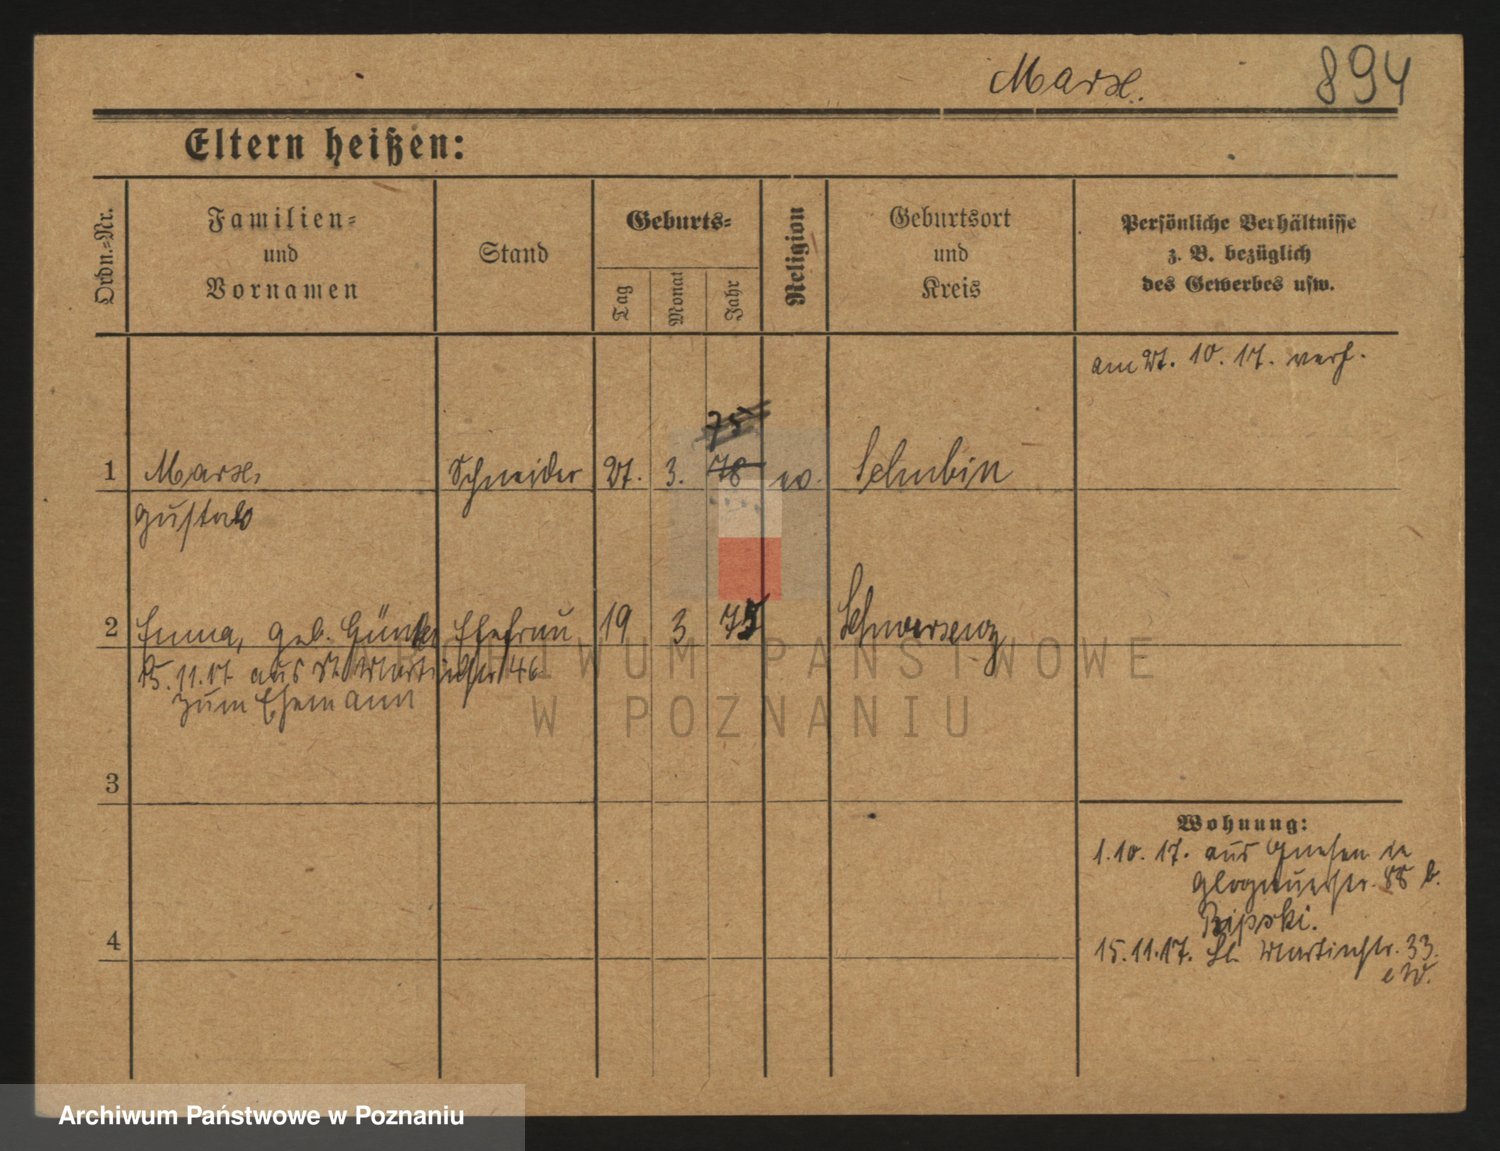 Marx.
894
Eltern heißen:
Ordn.=Nr.
Familien=
und
Vornamen
Stand
Geburts=
Tag
Monat
Jahr
Religion
Geburtsort
und
Kreis
Persönliche Verhältnisse
z. B. bezüglich
des Gewerbes usw.
am 27. 10. 17. verh.
75
1 Marx, Schneider 27. 3. 78 ev. Schubin
Gustav
2 Emma, geb. Ehefrau 19 3 75 Schwersenz
15.11.17 aus St. Martinstr. 46
zum Ehemann
3
Wohnung:
1.10.17. aus Gnesen
Glogauerstr. 88 b.
4
15.11.17. St. Martinstr. 33.
ARCHIWUM PAŃSTWOWE
W POZNANIU
Archiwum Państwowe w Poznaniu